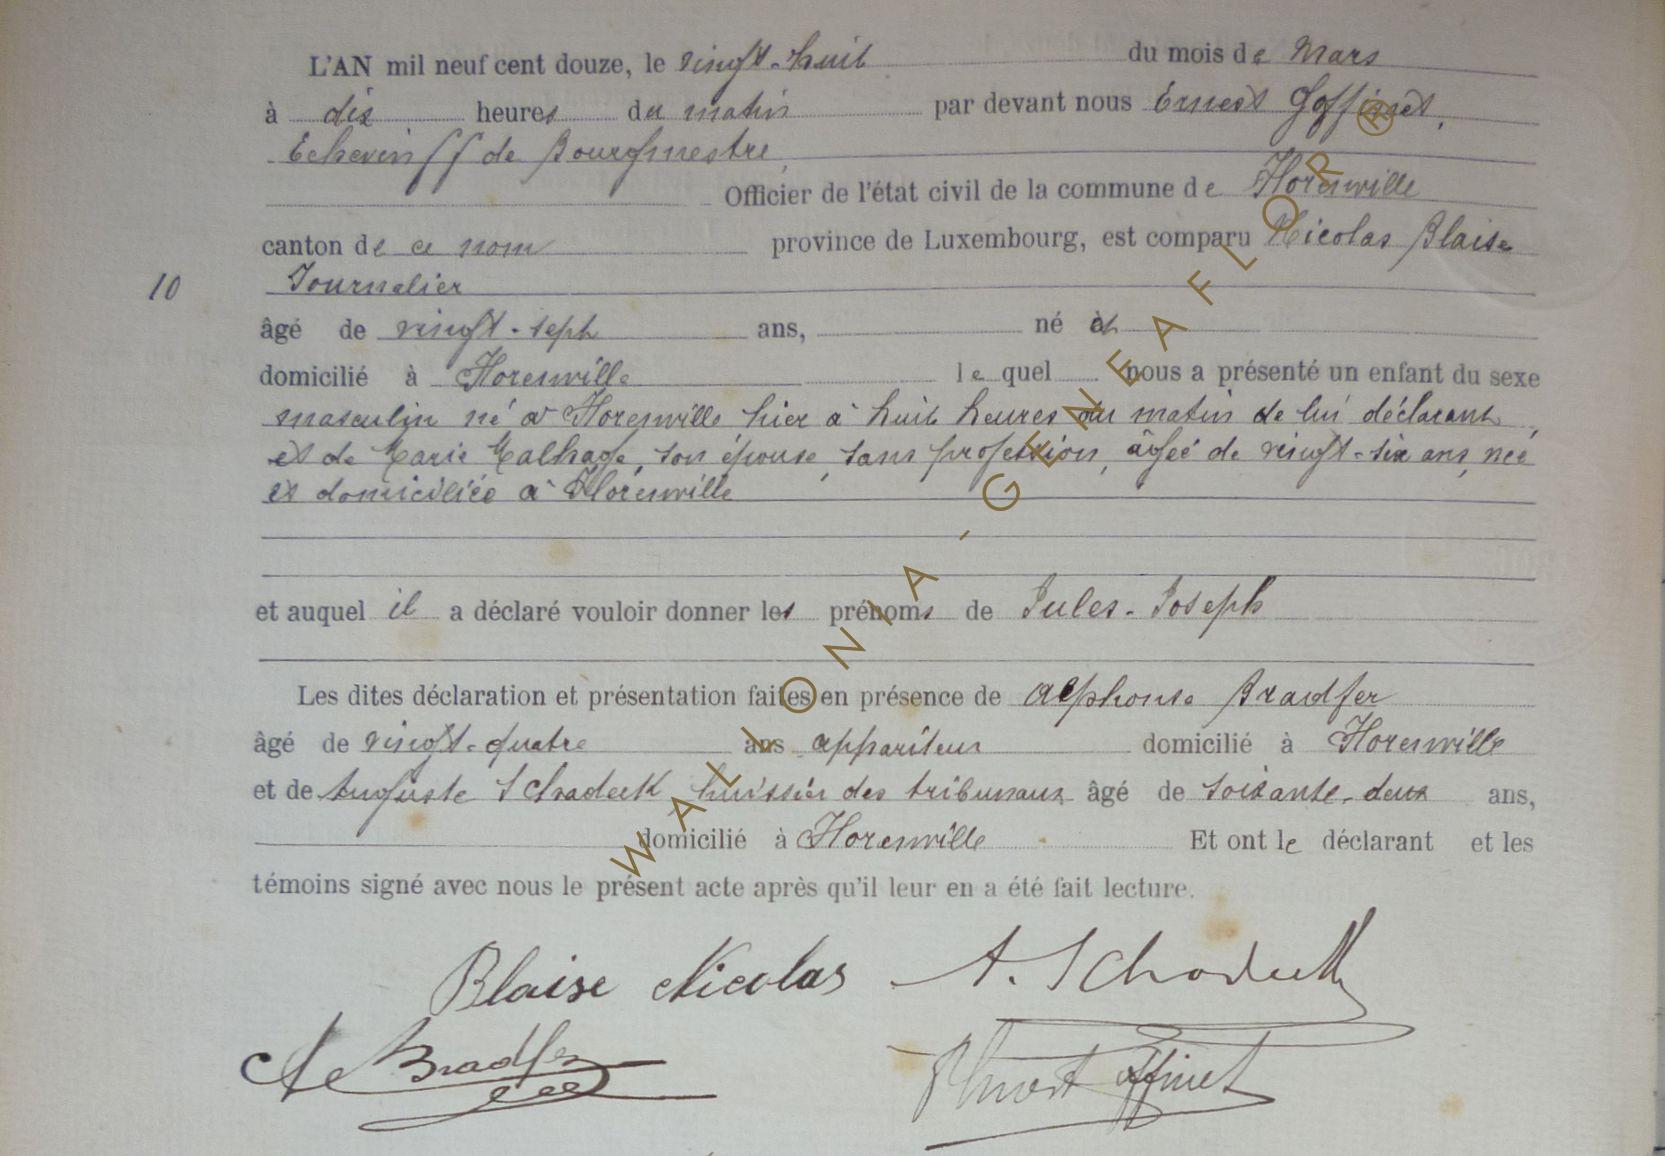 L'AN mil neuf cent douze, le vingt-huit du mois de Mars
à dix heures du matin par devant nous Ernest Goffinet,
Echevin ff de Bourgmestre,
Officier de l'état civil de la commune de Florenville
canton de ce nom province de Luxembourg, est comparu Nicolas Blaise
Journalier
10
âgé de vingt-sept ans, né et
domicilié à Florenville lequel nous a présenté un enfant du sexe
masculin né à Florenville hier à huit heures du matin de lui déclarant,
et de Marie Malhage, son épouse, sans profession, âgée de vingt-six ans, née
et domiciliée à Florenville
et auquel il a déclaré vouloir donner les prénoms de Jules-Joseph
Les dites déclaration et présentation faites en présence de Alphonse Bradfer
âgé de vingt-quatre ans appariteur domicilié à Florenville
et de Auguste Schadeck huissier des tribunaux âgé de soixante-deux ans,
domicilié à Florenville Et ont le déclarant et les
témoins signé avec nous le présent acte après qu'il leur en a été fait lecture.
Blaise Nicolas A. Schadeck
Al Bradfer Ernest Goffinet
WALLONIA - GENEAFLOR ®